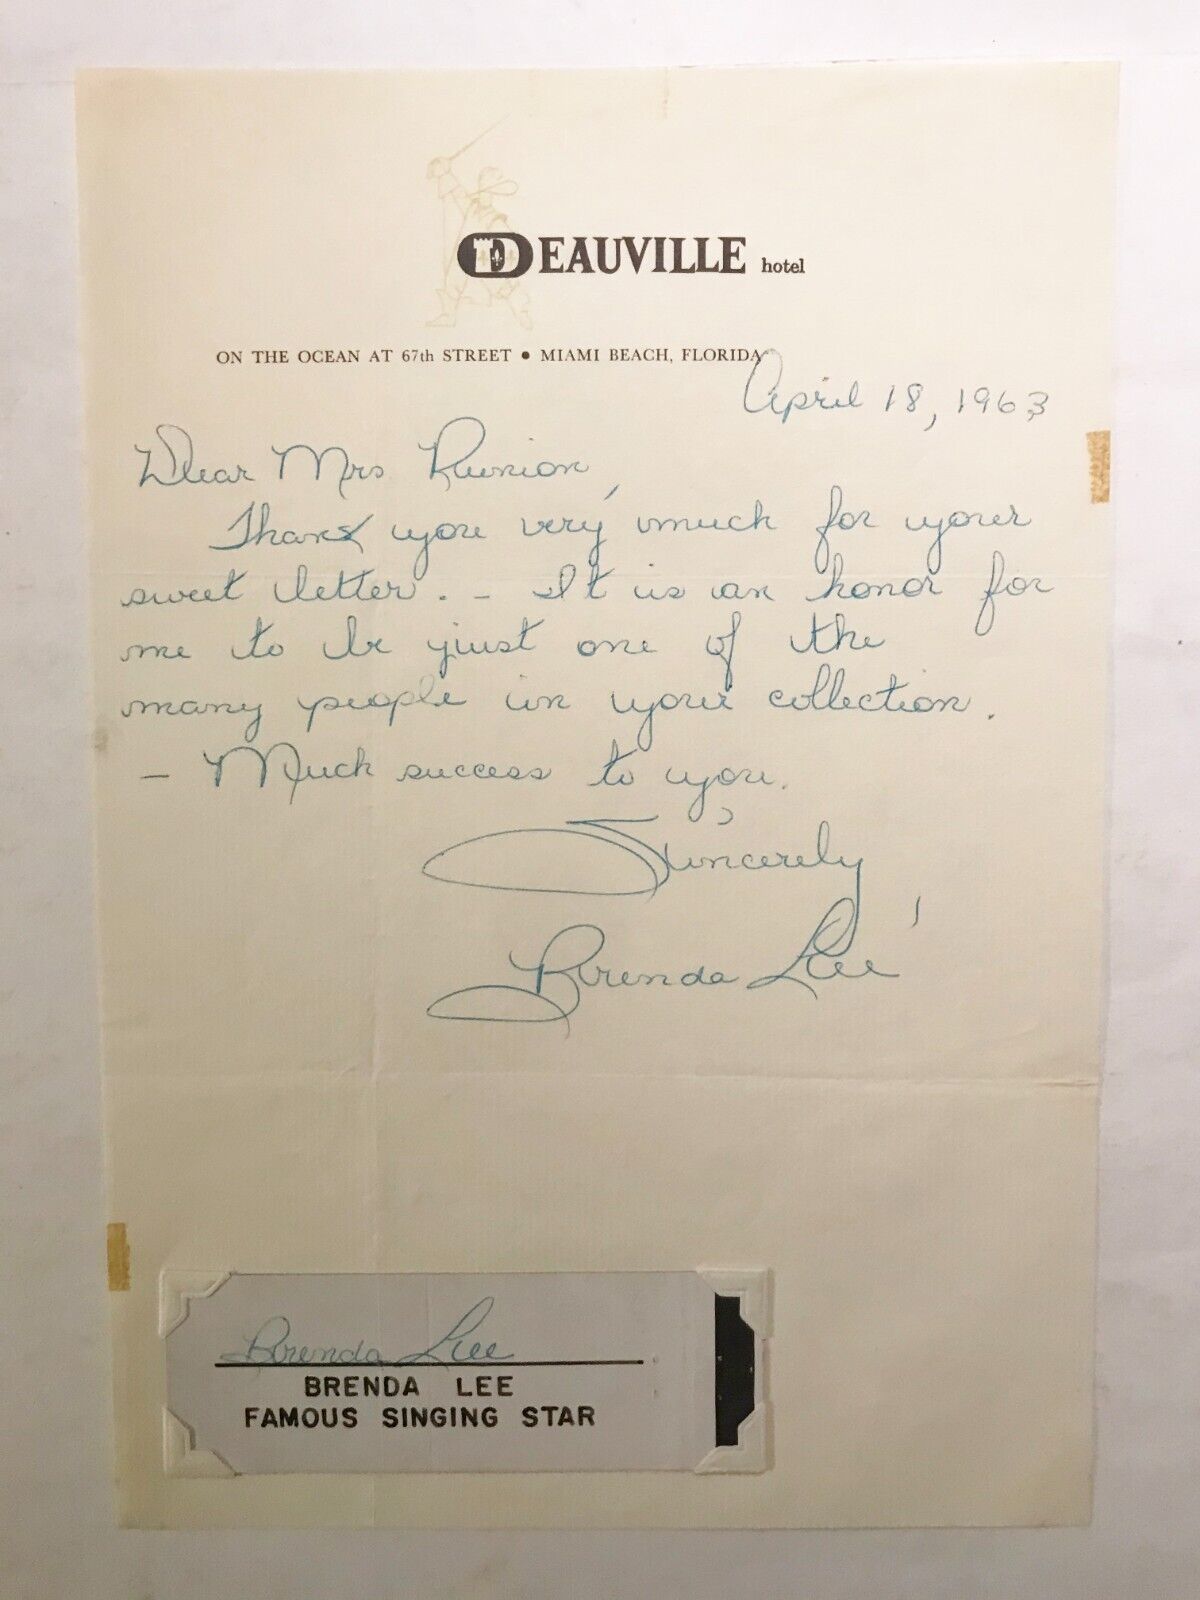 DEAUVILLE hotel
ON THE OCEAN AT 67th STREET • MIAMI BEACH, FLORIDA
April 18, 1963
Dear Mrs Runion,
Thank you very much for your
sweet letter. - It is an honor for
me to be just one of the
many people in your collection.
- Much success to you.
Sincerely,
Brenda Lee
Brenda Lee
BRENDA LEE
FAMOUS SINGING STAR